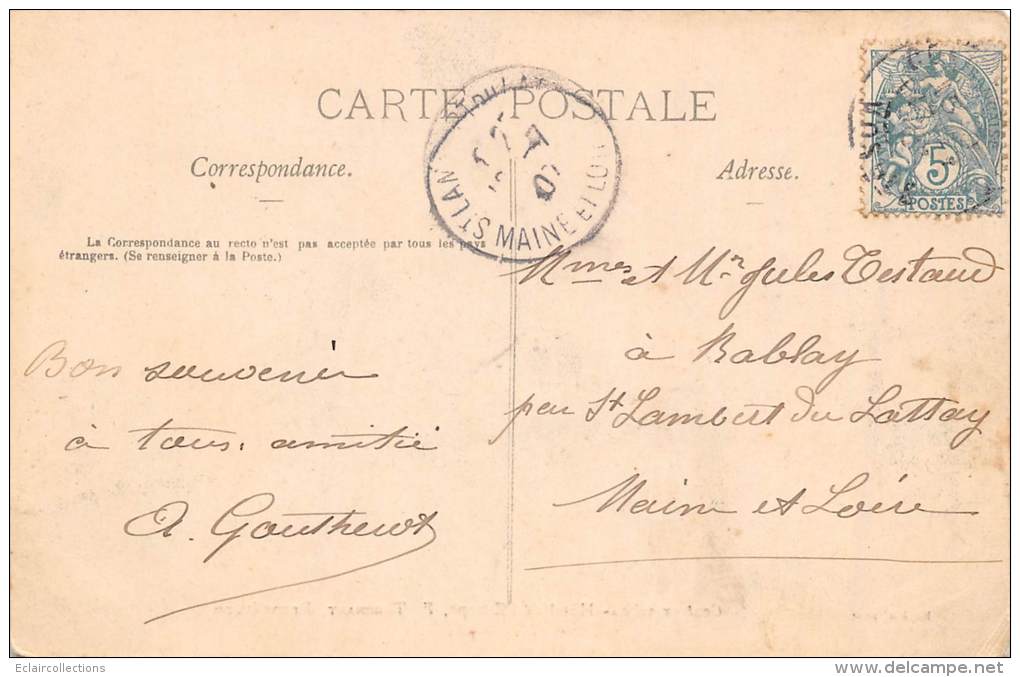 CARTE POSTALE
Correspondance.
Adresse.
La Correspondance au recto n'est pas acceptée par tous les pays
étrangers. (Se renseigner à la Poste.)
Bon souvenir
à tous. amitié
A. Gautherot
5
POSTES
ST LAM DU LAT
MAINE ET LOIR
07
Mmes et Mr Jules Testaud
à Rablay
par St Lambert du Lattay
Maine et Loire
Eclaircollections
www.delcampe.net